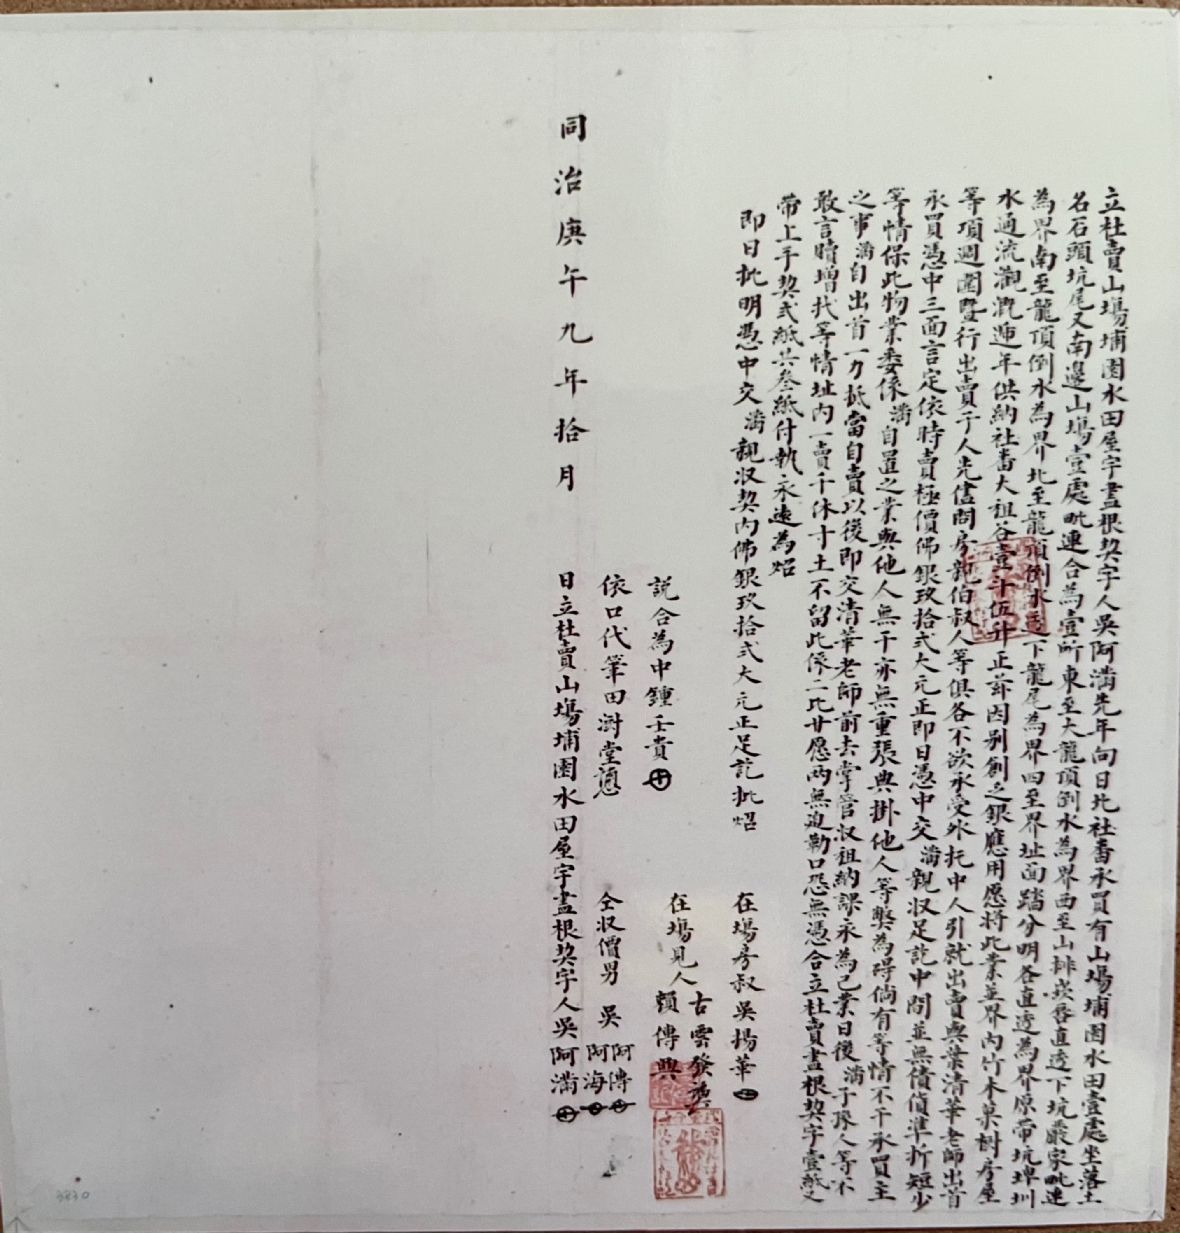 立杜賣山塲埔園水田屋宇盡根契字人吳阿滿先年向日北社番承買有山塲埔園水田壹處坐落土
名石頭坑尾又南邊山塲壹處毗連合為壹所東至大龍頂倒水為界西至山排崁唇直透下坑嚴家毗連
為界南至龍頂倒水為界北至龍頂倒水透下龍尾為界四至界址面踏分明各直透為界原帶坑埤圳
水通流灌溉遞年供納社番大祖谷壹斗伍升正茲因別創乏銀應用愿將此業並界內竹木菓樹房屋
等項週圍暨行出賣于人先儘問房親伯叔人等俱各不欲承受外托中人引就出賣與葉清華老師出首
承買憑中三面言定依時賣極價佛銀玖拾弍大元正即日憑中交滿親収足訖中間並無債貨準折短少
等情保此物業委係滿自置之業與他人無干亦無重張典掛他人等弊為碍倘有等情不干承買主
之事滿自出首一力抵當自賣以後即交清華老師前去掌管収租納課永為己業日後滿子孫人等不
敢言贖增找等情址內一賣千休寸土不留此係二比甘愿兩無迫勒口恐無憑合立杜賣盡根契字壹紙又
帶上手契弍紙共叁紙付執永遠為炤
即日批明憑中交滿親収契內佛銀玖拾弍大元正足訖批炤
在塲房叔吳揚華
說合為中鍾壬貴
在塲見人
古雲發
賴傳興
依口代筆田澍堂
仝収價男 吳
阿傳
阿海
同治庚午九年拾月 日立杜賣山塲埔園水田屋宇盡根契字人吳阿滿
3830